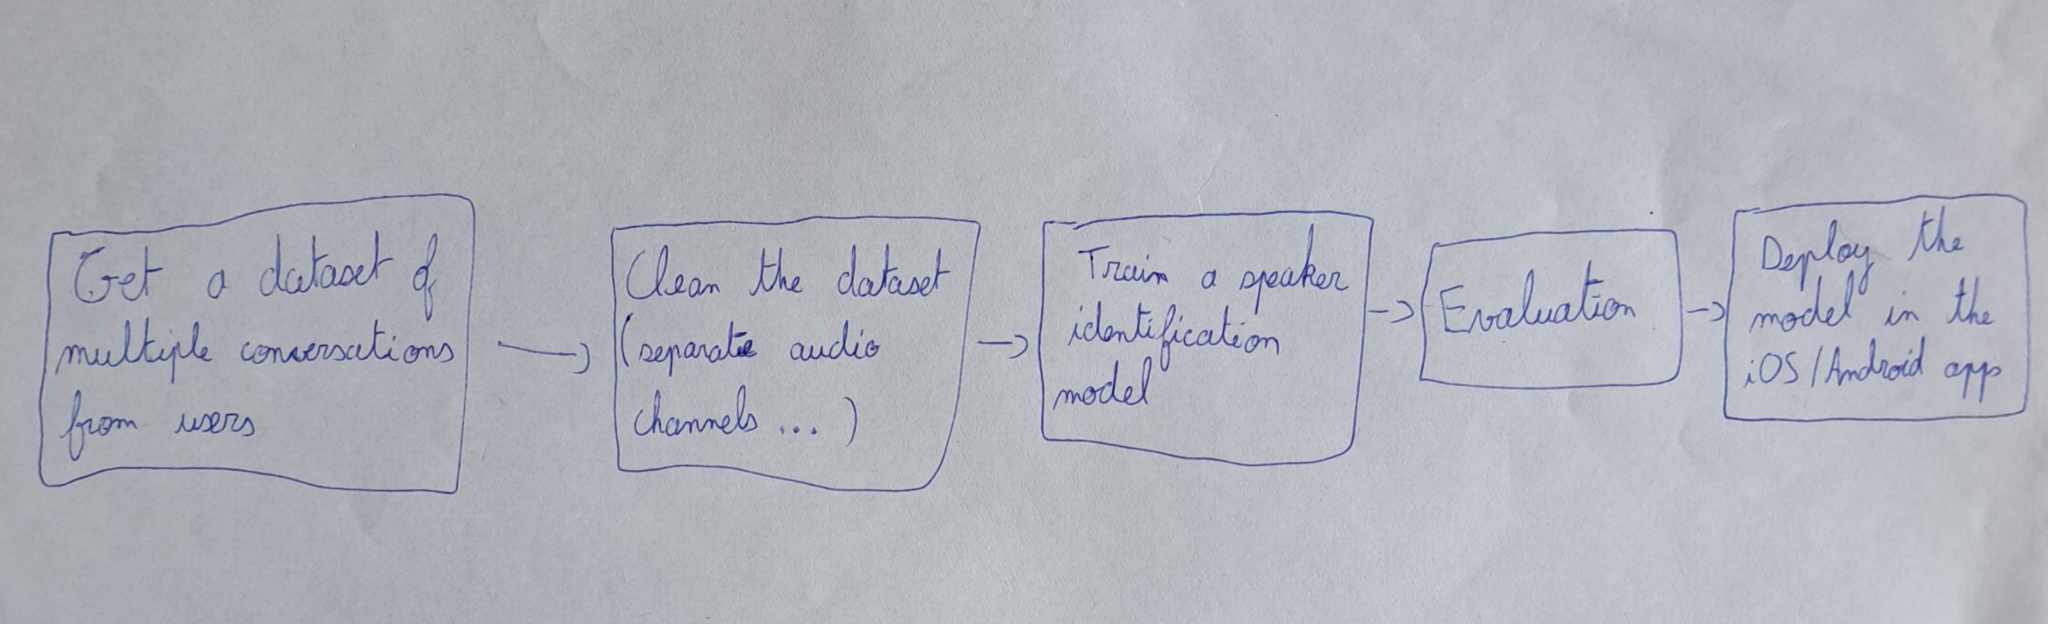 Get a dataset of
multiple conversations
from users
Clean the dataset
(separate audio
channels ... )
Train a speaker
identification
model
Evaluation
Deploy the
model in the
iOS/Android app